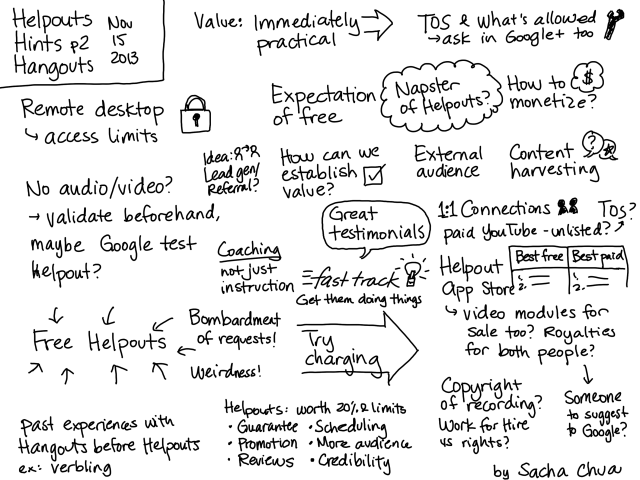 Helpouts
Hints p2
Hangouts
Nov
15
2013
Value: Immediately
practical
TOS & what's allowed
→ask in Google+ too
Remote desktop
↳ access limits
Expectation
of free
Napster
of Helpouts?
How to
monetize?
$
Idea: R⁷R
Lead gen/
Referral?
How can we
establish
value?
External
audience
Content
harvesting
?
No audio/video?
→ validate beforehand,
maybe Google test
Helpout?
Great
testimonials
1:1 Connections
TOS?
paid YouTube - unlisted?
Coaching
not just
instruction
fast track
Get them doing things
Helpout
App Store
Best free
1.
2.
Best paid
1.
2.
↳ video modules for
sale too? Royalties
for both people?
Free Helpouts
Bombardment
of requests!
Weirdness!
Try
charging
Copyright
of recording?
Work for Hire
vs rights?
Someone
to suggest
to Google?
Past experiences with
Hangouts before Helpouts
ex: verbling
Helpouts: worth 20%& limits
• Guarantee • Scheduling
• Promotion • More audience
• Reviews • Credibility
by Sacha Chua